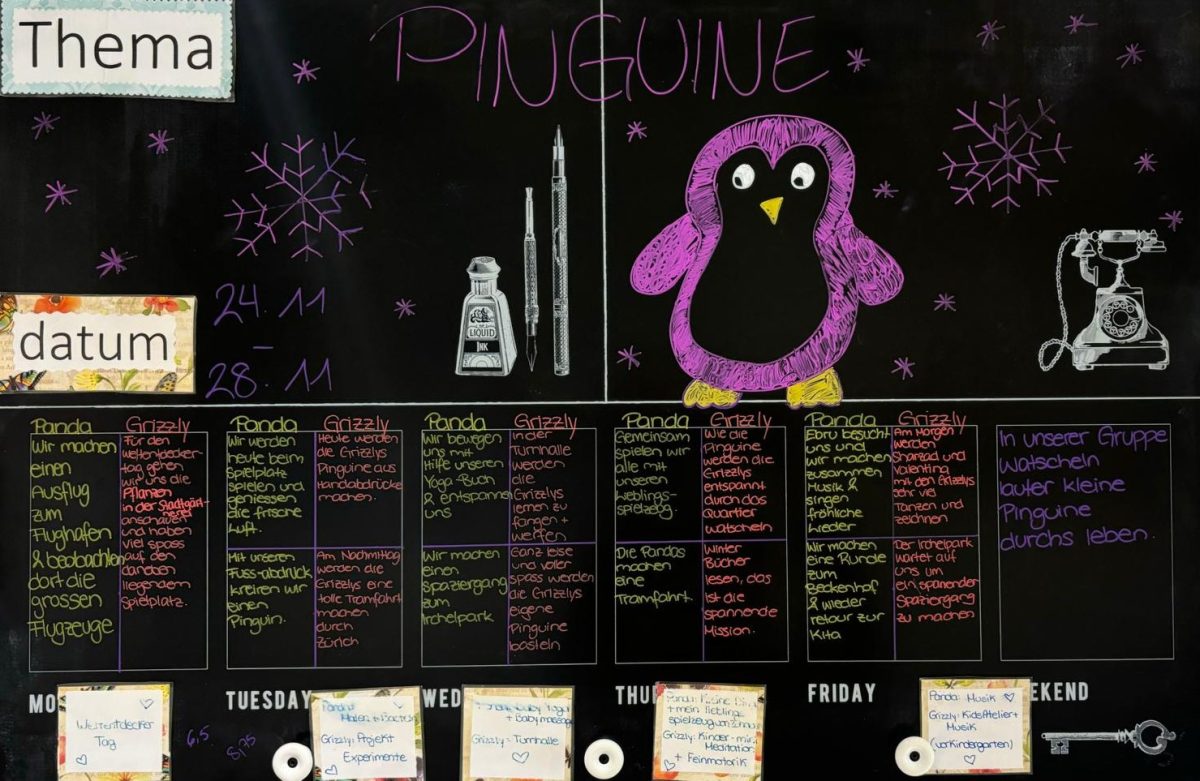 Thema
PINGUINE
LIQUID
INK
datum
24.11
–
28.11
Panda
Wir machen
einen
Ausflug
zum
Flughafen
& beobachten
dort die
grossen
Flugzeuge
Grizzly
Für den
Weltentdecker-
tag gehen
wir uns die
Pflanzen
in der Stadtgärt-
nerei
anschauen
und haben
viel spass
auf den
daneben
liegendem
Spielplatz.
Panda
Wir werden
heute beim
Spielplatz
spielen und
geniessen
die frische
Luft.
Mit unseren
Fuss-abdruck
kreiren wir
einen
Pinguin.
Grizzly
Heute werden
die Grizzlys
Pinguine aus
Handabdrücke
machen.
Am Nachmittag
werden die
Grizzlys eine
tolle Tramfahrt
machen
durch
Zürich
Panda
Wir bewegen
uns mit
Hilfe unseren
Yoga-Buch
& entspannen
uns
Wir machen
einen
Spaziergang
zum
Irchelpark
Grizzly
In der
Turnhalle
werden
die
Grizzlys
lernen zu
fangen +
werfen
Ganz leise
und voller
spass werden
die Grizzlys
eigene
Pinguine
basteln
Panda
Gemeinsam
spielen wir
alle mit
unseren
Lieblings-
spielzeug.
Die Pandas
machen
eine
Tramfahrt.
Grizzly
Wie die
Pinguine
werden die
Grizzlys
entspannt
durch das
Quartier
watscheln
Winter
Bücher
lesen, das
ist die
spannende
Mission.
Panda
Ebru besucht
uns und
wir machen
zusammen
Musik &
singen
fröhliche
Lieder
Wir machen
eine Runde
zum
Beckenhof
& wieder
retour zur
Kita
Grizzly
Am Morgen
werden
Sharzad und
Valentina
mit den Grizzlys
sehr viel
Tanzen und
zeichnen
Der Irchelpark
wartet auf
uns um
ein spanender
Spaziergang
zu machen
In unserer Gruppe
watscheln
lauter kleine
Pinguine
durchs leben.
MO
TUESDAY
WED
THU
FRIDAY
EKEND
Weltentdecker
Tag
6,5
Panda:
Malen +
Grizzly: Projekt
Experimente
Baby Yoga
+ Babymassage
Grizzly: Turnhalle
Panda:
+ mein lieblings
spielzeug von Zuhause
Grizzly: Kinder-mini
Meditation
+ Feinmotorik
Panda: Musik
Grizzly: KidsAtelier +
Musik
(vorkindergarten)